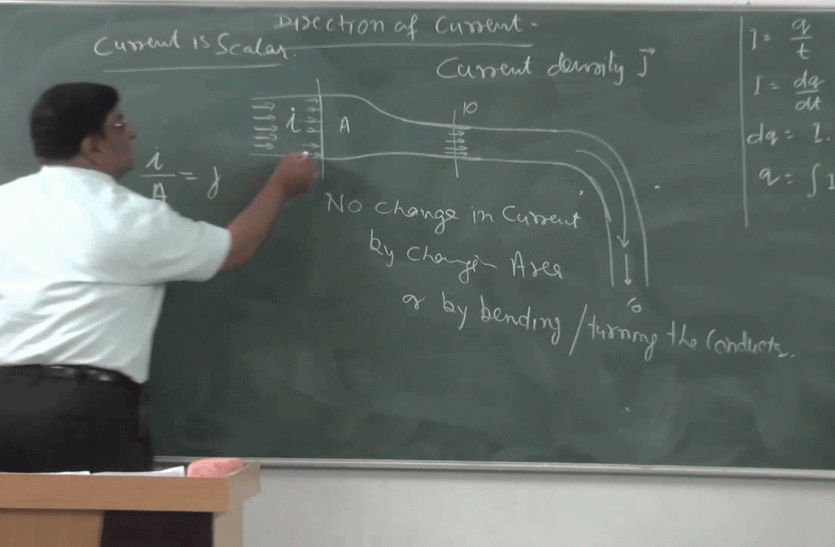 Direction of Current.
Current is Scalar.
Current density J⃗
I = q/t
I = dq/dt
dq = I.
q = ∫ I
i
A
10
i/A = j
No change in Current
by change in Area
or by bending / turning the Conductor.
10